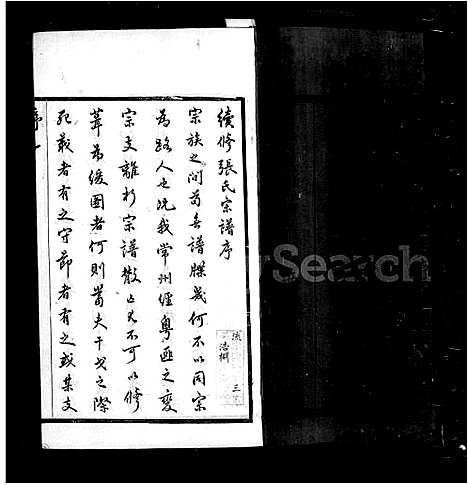 續修張氏宗譜序
宗族之間苟無譜牒幾何不以同宗
為路人也況我常州經粵匪之變
宗支離析宗譜散亡尤不可以修
葺為緩圖者何則當夫干戈之際
死義者有之守節者有之或某支
序一
Search
浩桐
三